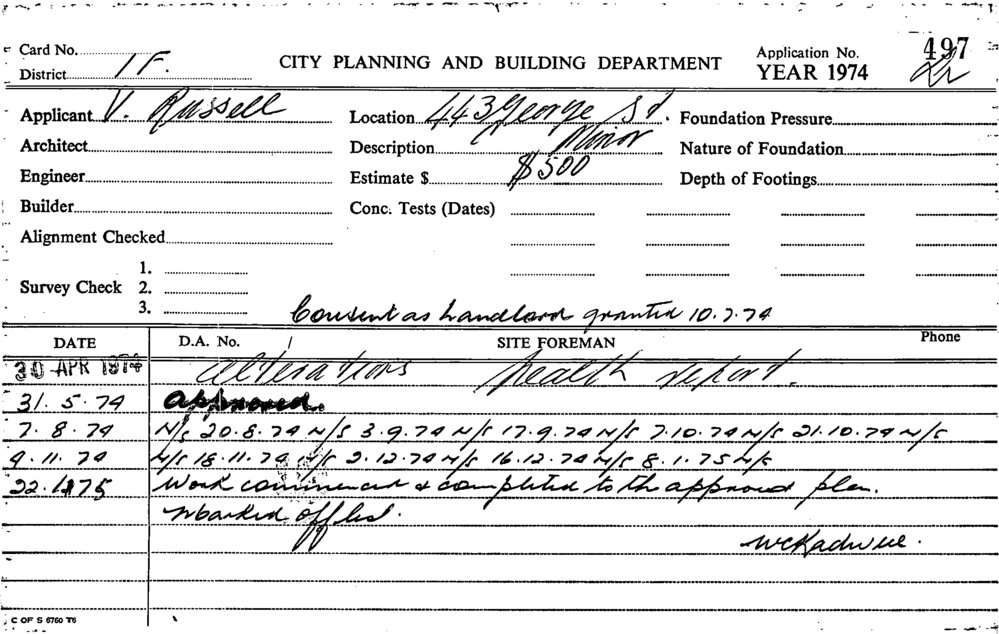 Card No. 497
District 1F. CITY PLANNING AND BUILDING DEPARTMENT Application No.
YEAR 1974
Applicant V. Russell Location 443 George St. Foundation Pressure
Architect Description Minor Nature of Foundation
Engineer Estimate $ $500 Depth of Footings
Builder Conc. Tests (Dates)
Alignment Checked
1.
Survey Check 2.
3.
Consent as Landlord granted 10.7.74
DATE D.A. No. / SITE FOREMAN Phone
30 APR 1974 alterations health report.
31.5.74 approved.
7.8.74 N/S 20.8.74 N/S 3.9.74 N/S 17.9.74 N/S 7.10.74 N/S 21.10.74 N/S
9.11.74 N/S 18.11.74 N/S 2.12.74 N/S 16.12.74 N/S 8.1.75 N/S
22.1.75 Work commenced & completed to th approved plan.
Marked off list.
C OF S 6760 T6